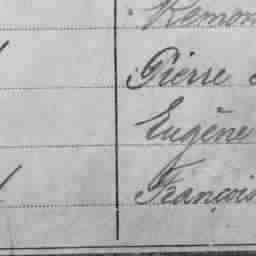 Pierre
Eugène
François